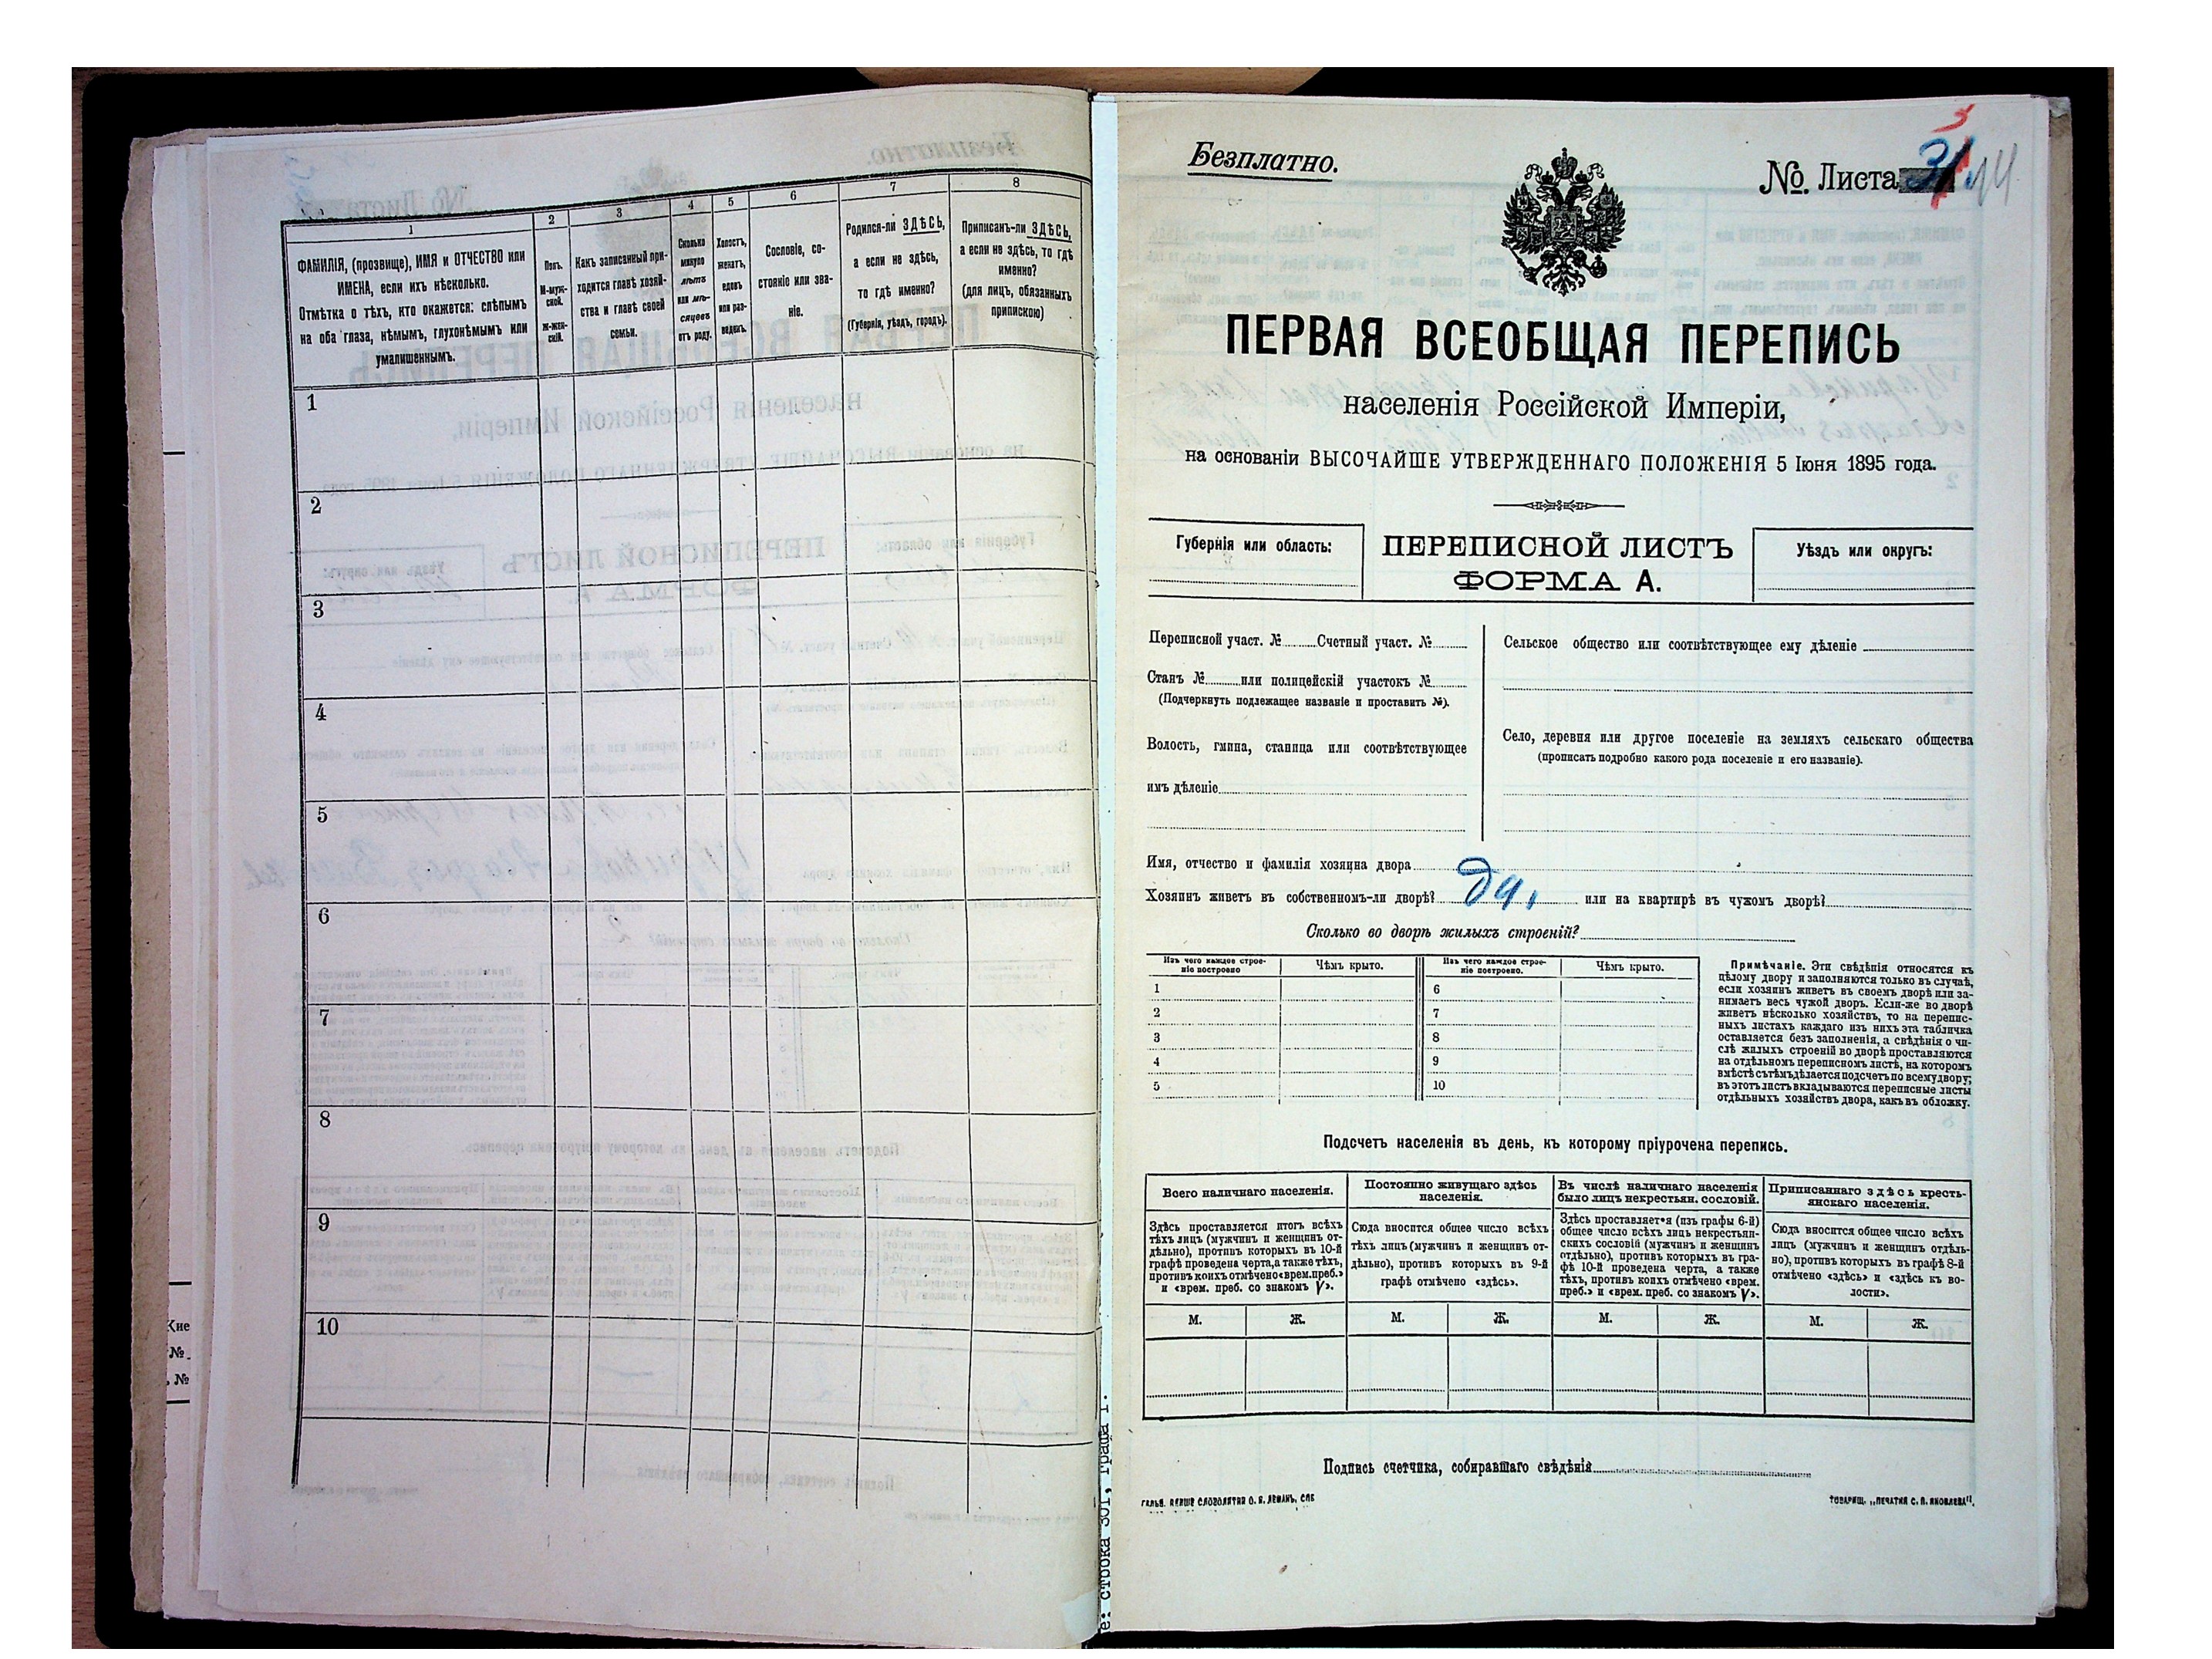 1 2 3 4 5 6 7 8
ФАМИЛІЯ, (прозвище), ИМЯ и ОТЧЕСТВО или
ИМЕНА, если ихъ нѣсколько.
Отмѣтка о тѣхъ, кто окажется: слѣпымъ
на оба глаза, нѣмымъ, глухонѣмымъ или
умалишеннымъ.
Полъ.
М-муж-
ской.
Ж-жен-
скій.
Какъ записанный при-
ходится главѣ хозяй-
ства и главѣ своей
семьи.
Сколько
минуло
лѣтъ
или мѣ-
сяцевъ
отъ роду.
Холостъ,
женатъ,
вдовъ
или раз-
веденъ.
Сословіе, со-
стояніе или зва-
ніе.
Родился-ли ЗДѢСЬ,
а если не здѣсь,
то гдѣ именно?
(Губернія, уѣздъ, городъ).
Приписанъ-ли ЗДѢСЬ,
а если не здѣсь, то гдѣ
именно?
(для лицъ, обязанныхъ
припискою)
1
2
3
4
5
6
7
8
9
10
Кие
№
№
Безплатно.
№. Листа 14
3
ПЕРВАЯ ВСЕОБЩАЯ ПЕРЕПИСЬ
населенія Россійской Имперіи,
на основаніи ВЫСОЧАЙШЕ УТВЕРЖДЕННАГО ПОЛОЖЕНІЯ 5 Іюня 1895 года.
Губернія или область:
ПЕРЕПИСНОЙ ЛИСТЪ
ФОРМА А.
Уѣздъ или округъ:
Переписной участ. № Счетный участ. №
Станъ № или полицейскій участокъ №
(Подчеркнуть подлежащее названіе и проставить №).
Волость, гмина, станица или соотвѣтствующее
имъ дѣленіе
Сельское общество или соотвѣтствующее ему дѣленіе
Село, деревня или другое поселеніе на земляхъ сельскаго общества
(прописать подробно какого рода поселеніе и его названіе).
Имя, отчество и фамилія хозяина двора
Хозяинъ живетъ въ собственномъ-ли дворѣ? Да, или на квартирѣ въ чужомъ дворѣ?
Сколько во дворѣ жилыхъ строеній?
Изъ чего каждое строе-
ніе построено
Чѣмъ крыто.
Изъ чего каждое строе-
ніе построено.
Чѣмъ крыто.
1 6
2 7
3 8
4 9
5 10
Примѣчаніе. Эти свѣдѣнія относятся къ
цѣлому двору и заполняются только въ случаѣ,
если хозяинъ живетъ въ своемъ дворѣ или за-
нимаетъ весь чужой дворъ. Если-же во дворѣ
живетъ нѣсколько хозяйствъ, то на перепис-
ныхъ листахъ каждаго изъ нихъ эта табличка
оставляется безъ заполненія, а свѣдѣнія о чи-
слѣ жилыхъ строеній во дворѣ проставляются
на отдѣльномъ переписномъ листѣ, на которомъ
вмѣстѣ съ тѣмъ дѣлается подсчетъ по всему двору;
въ этотъ листъ вкладываются переписные листы
отдѣльныхъ хозяйствъ двора, какъ въ обложку.
Подсчетъ населенія въ день, къ которому пріурочена перепись.
Всего наличнаго населенія.
Здѣсь проставляется итогъ всѣхъ
тѣхъ лицъ (мужчинъ и женщинъ от-
дѣльно), противъ которыхъ въ 10-й
графѣ проведена черта, а также тѣхъ,
противъ коихъ отмѣчено «врем. преб.»
и «врем. преб. со знакомъ V».
Постоянно живущаго здѣсь
населенія.
Сюда вносится общее число всѣхъ
тѣхъ лицъ (мужчинъ и женщинъ от-
дѣльно), противъ которыхъ въ 9-й
графѣ отмѣчено «здѣсь».
Въ числѣ наличнаго населенія
было лицъ некрестьян. сословій.
Здѣсь проставляется (изъ графы 6-й)
общее число всѣхъ лицъ некрестьян-
скихъ сословій (мужчинъ и женщинъ
отдѣльно), противъ которыхъ въ гра-
фѣ 10-й проведена черта, а также
тѣхъ, противъ коихъ отмѣчено «врем.
преб.» и «врем. преб. со знакомъ V».
Приписаннаго здѣсь кресть-
янскаго населенія.
Сюда вносится общее число всѣхъ
лицъ (мужчинъ и женщинъ отдѣль-
но), противъ которыхъ въ графѣ 8-й
отмѣчено «здѣсь» и «здѣсь къ во-
лости».
М. Ж. М. Ж. М. Ж. М. Ж.
Подпись счетчика, собиравшаго свѣдѣнія
ТОВАРИЩ. „ПЕЧАТНЯ С. П. ЯКОВЛЕВА".
е: строка 301, графа 1.